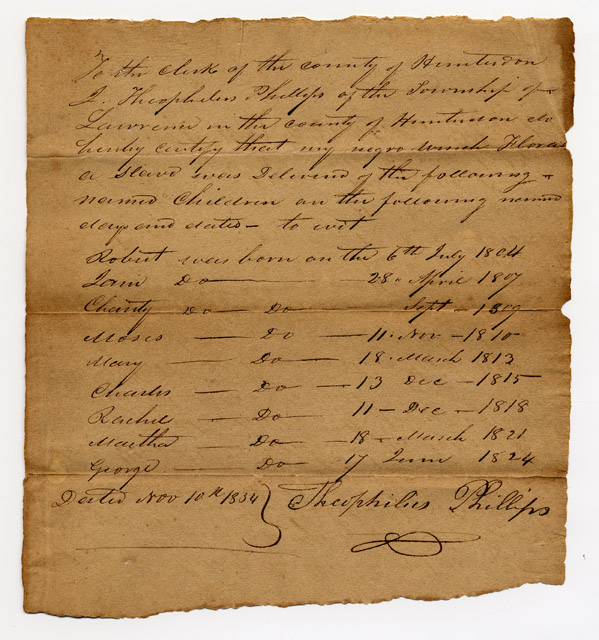 To the Clerk of the county of Hunterdon
I. Theophilus Phillips of the Township of
Lawrence in the county of Hunterdon do
hereby certify that my negro wench Flora
a slave was Delivered of the following
named Children on the following named
days and dates - to wit
Robert was born on the 6th July 1804
Jam Do 28 April 1807
Charity Do Do Sept 1809
Moses Do 11 Nov 1810
Mary Do 18 March 1813
Charles Do 13 Dec 1815
Rachel Do 11 Dec 1818
Martha Do 18 March 1821
George Do 17 June 1824
Dated Nov 10th 1834 Theophilus Phillips